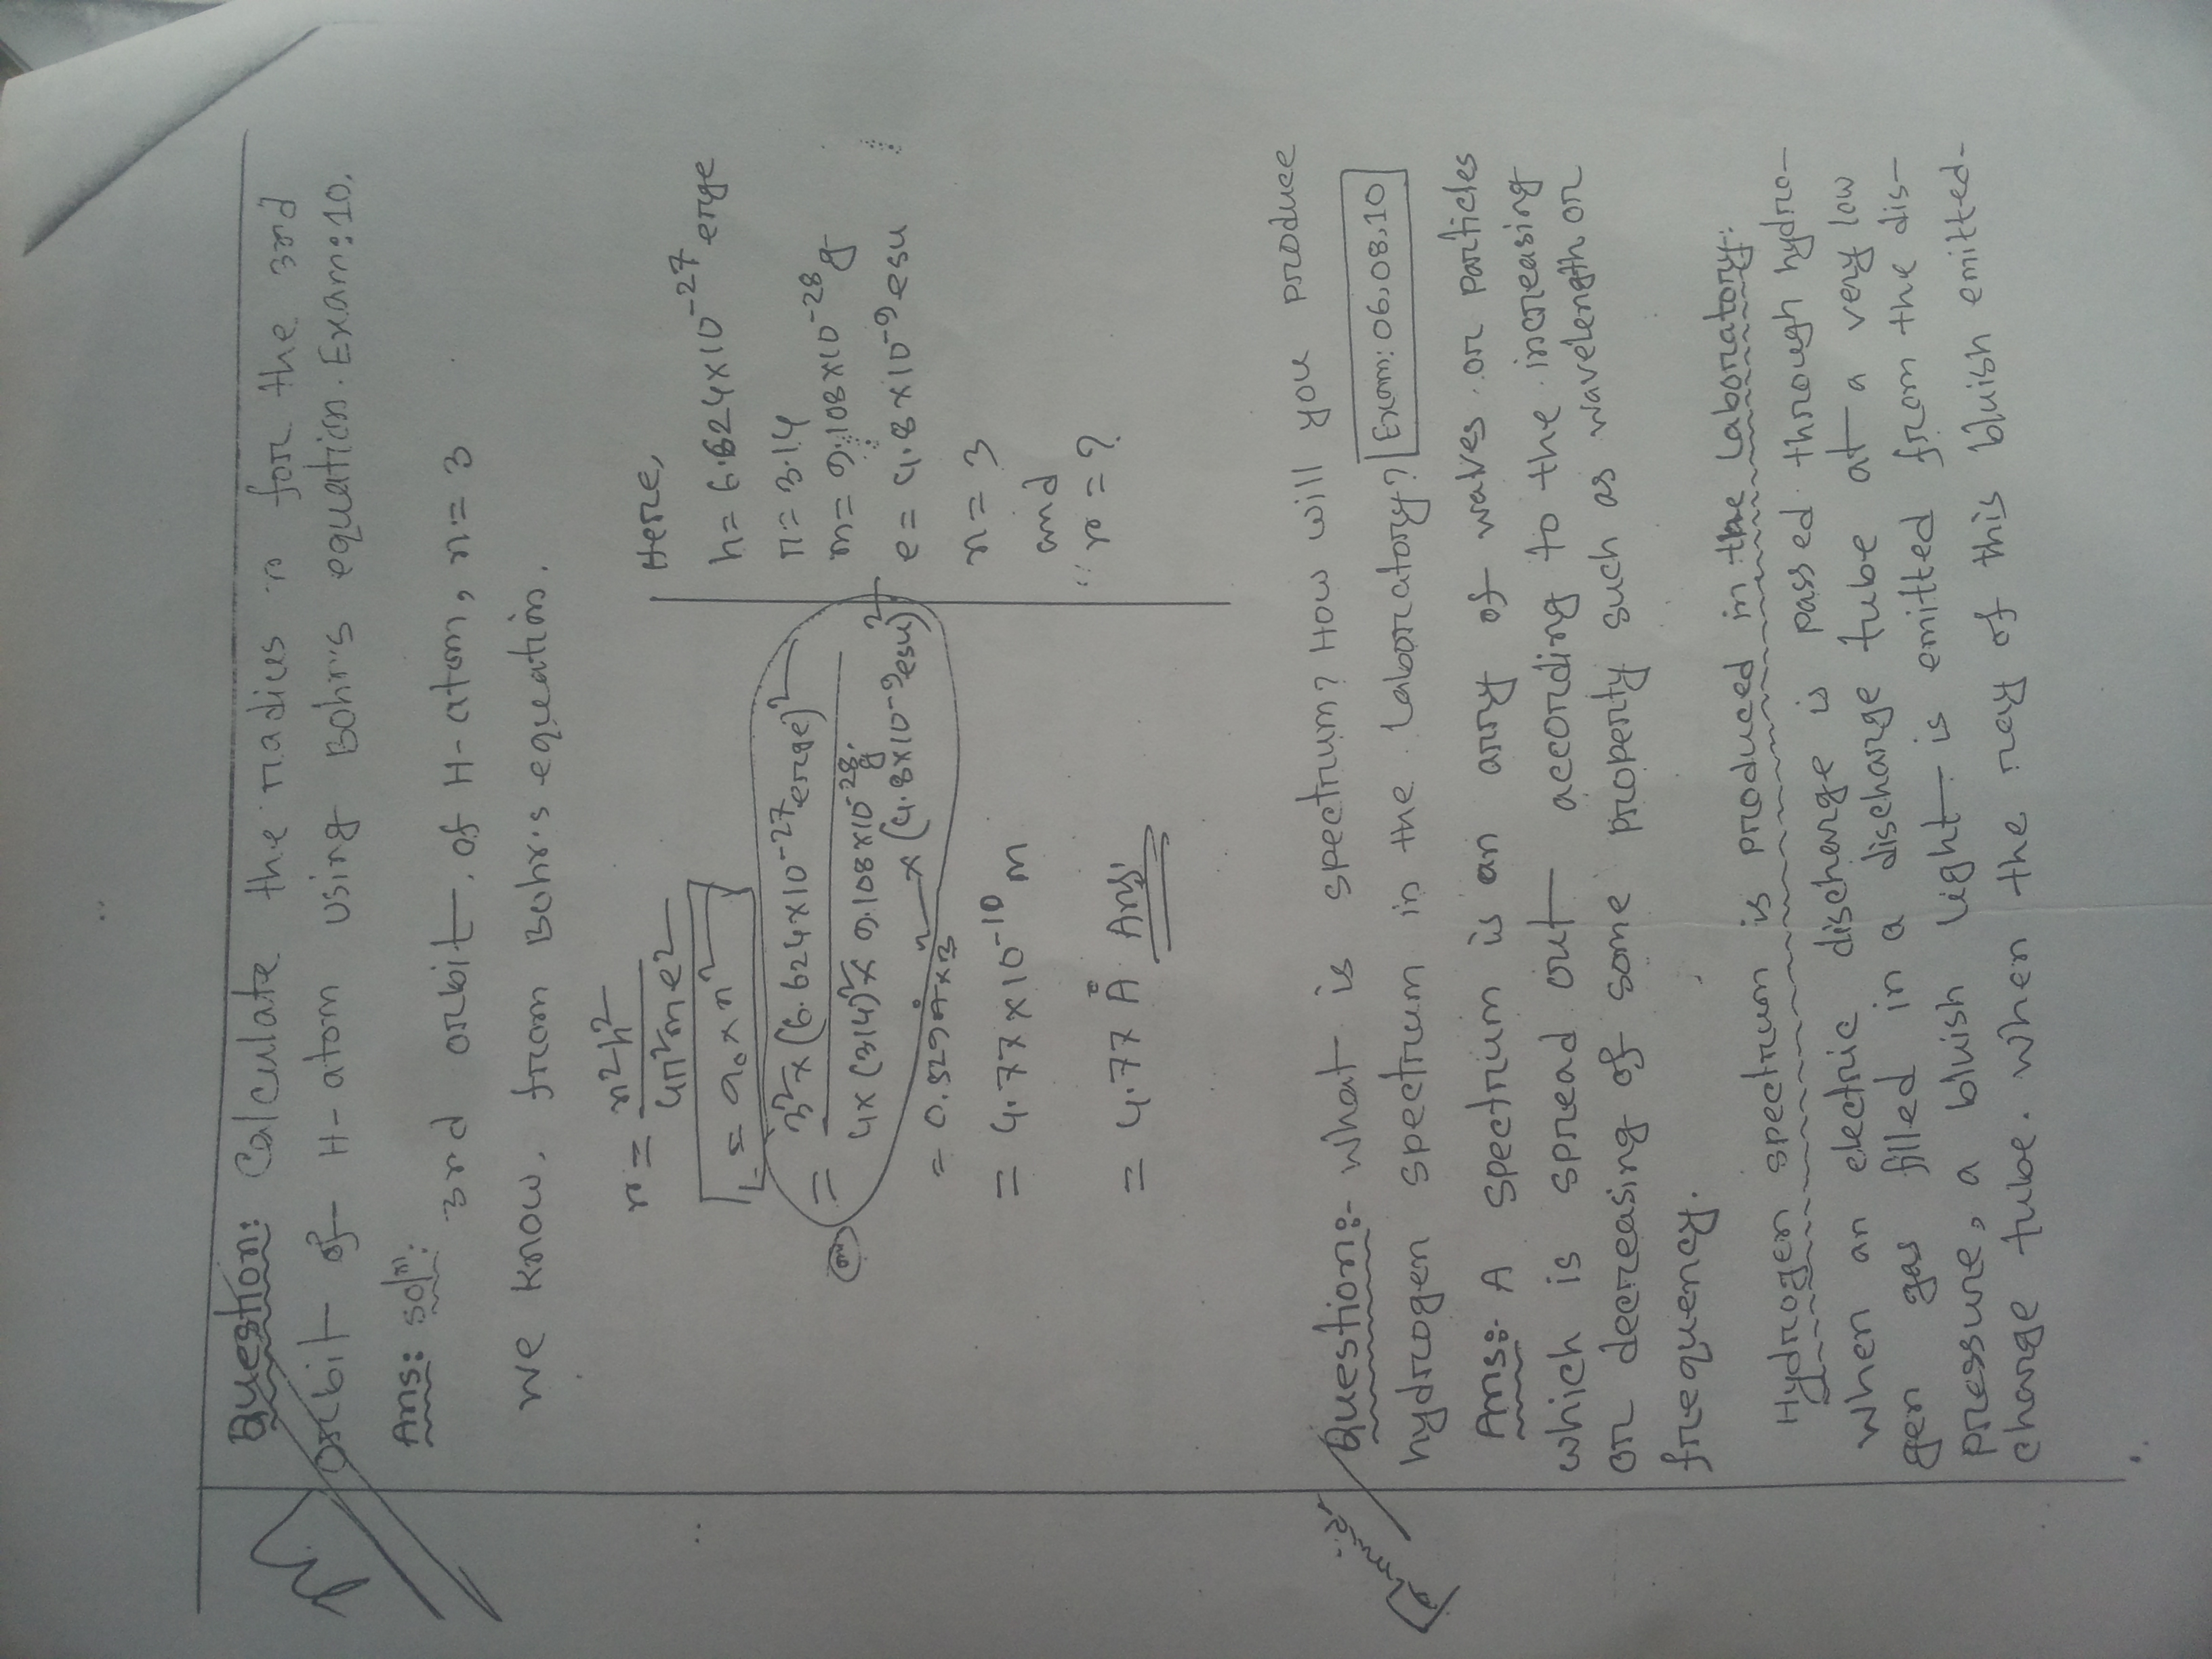 Question: Calculate the radius r for the 3rd
orbit of H-atom using Bohr's equation. Exam:10.
Ans: solⁿ:
3rd orbit of H-atom, n = 3
We know, from Bohr's equation.
r = n²h² / 4π²me²
= a₀ × n²
= 3² × (6.624×10⁻²⁷ erge)² / 4×(314)² × 9.108×10⁻²⁸g. × (4.8×10⁻⁹esu)²
= 0.529Å × 3²
= 4.77×10⁻¹⁰ m
= 4.77 Å Ans:
Here,
h = 6.624×10⁻²⁷ erge
π = 3.14
m = 9.108×10⁻²⁸ g
e = 4.8×10⁻⁹ esu
n = 3
and
r = ?
Question:- What is spectrum? How will you produce
hydrogen spectrum in the laboratory? Exam: 06,08,10
Ans:- A spectrum is an arry of waves or particles
which is spread out according to the increasing
or decreasing of some property such as wavelength or
frequency.
Hydrogen spectrum is produced in the laboratory:
When an electric discharge is passed through hydro-
gen gas filled in a discharge tube at a very low
pressure, a bluish light is emitted from the dis-
charge tube. When the ray of this bluish emitted-